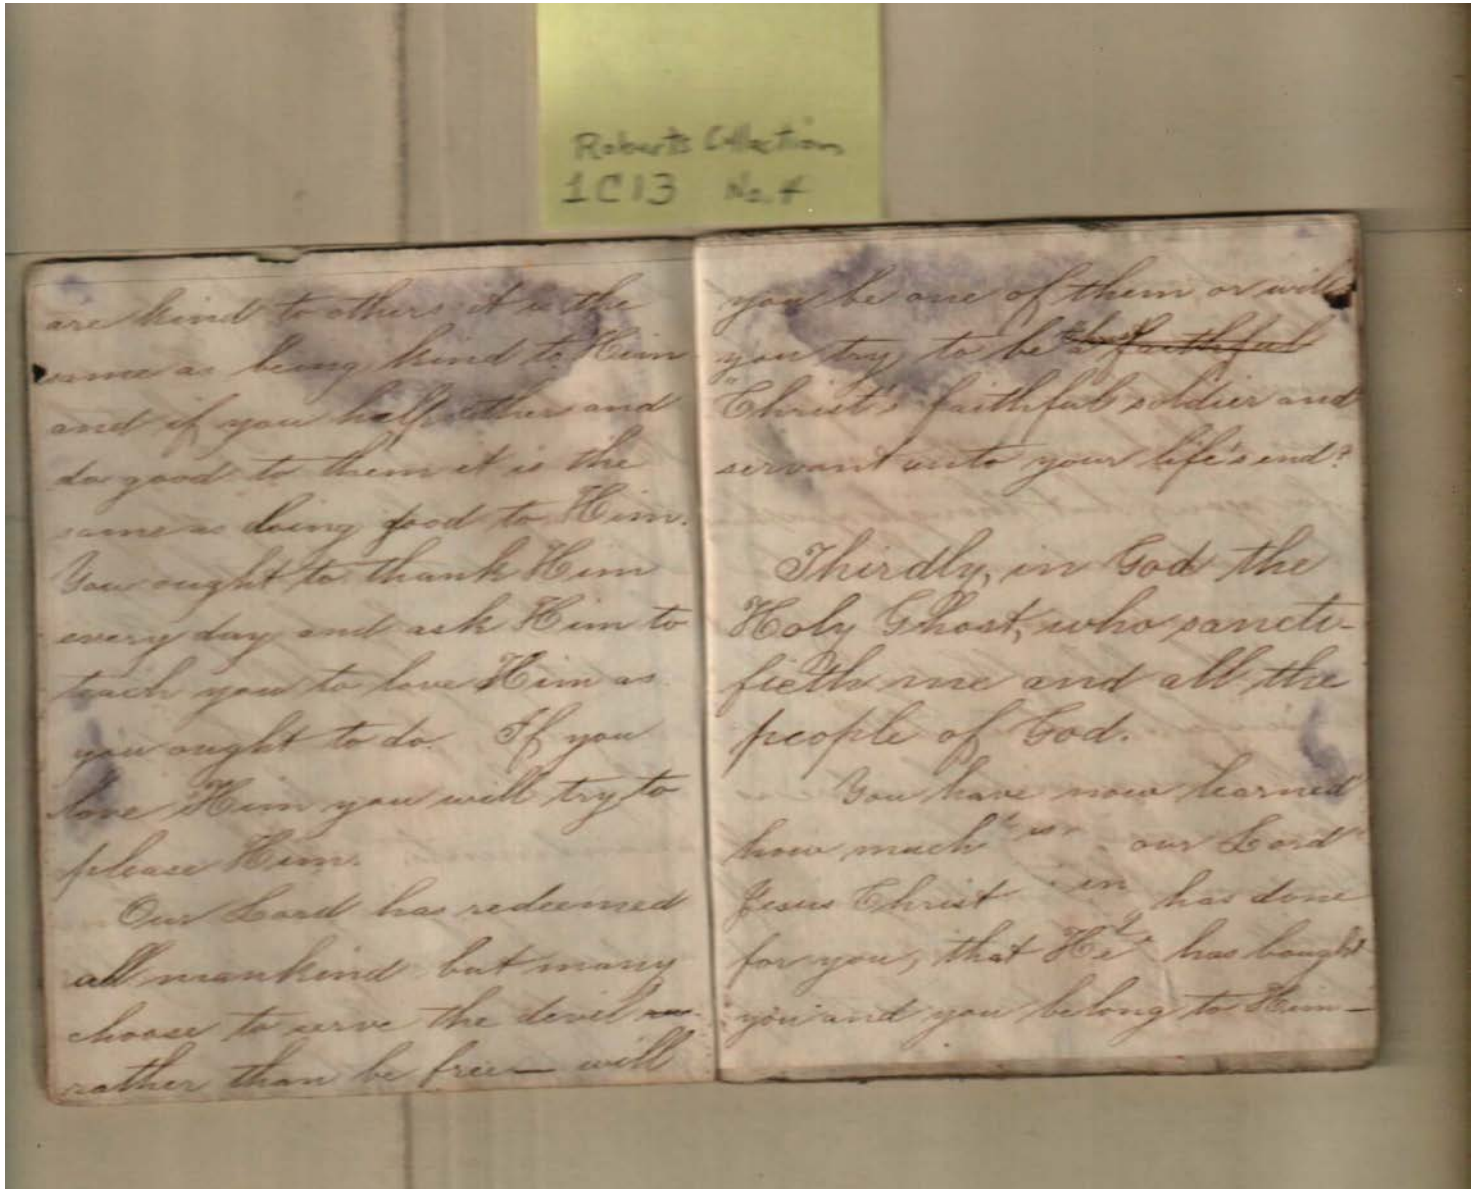 Roberts Collection
1C13 No. 4
are kind to others it is the
same as being kind to Him
and if you help other and
do good to them it is the
same as doing good to Him.
You ought to thank Him
every day and ask Him to
teach you to love Him as
you ought to do. If you
love Him you will try to
please Him.
Our Lord has redeemed
all mankind but many
choose to serve the devil
rather than be free — will
you be one of them or will
you try to be a faithful
"Christ's faithful soldier and
servant unto your life's end?
Thirdly, in God the
Holy Ghost, who sancti-
fieth me and all the
people of God.
You have now learned
how much our Lord
Jesus Christ has done
for you, that He has bought
you and you belong to Him —